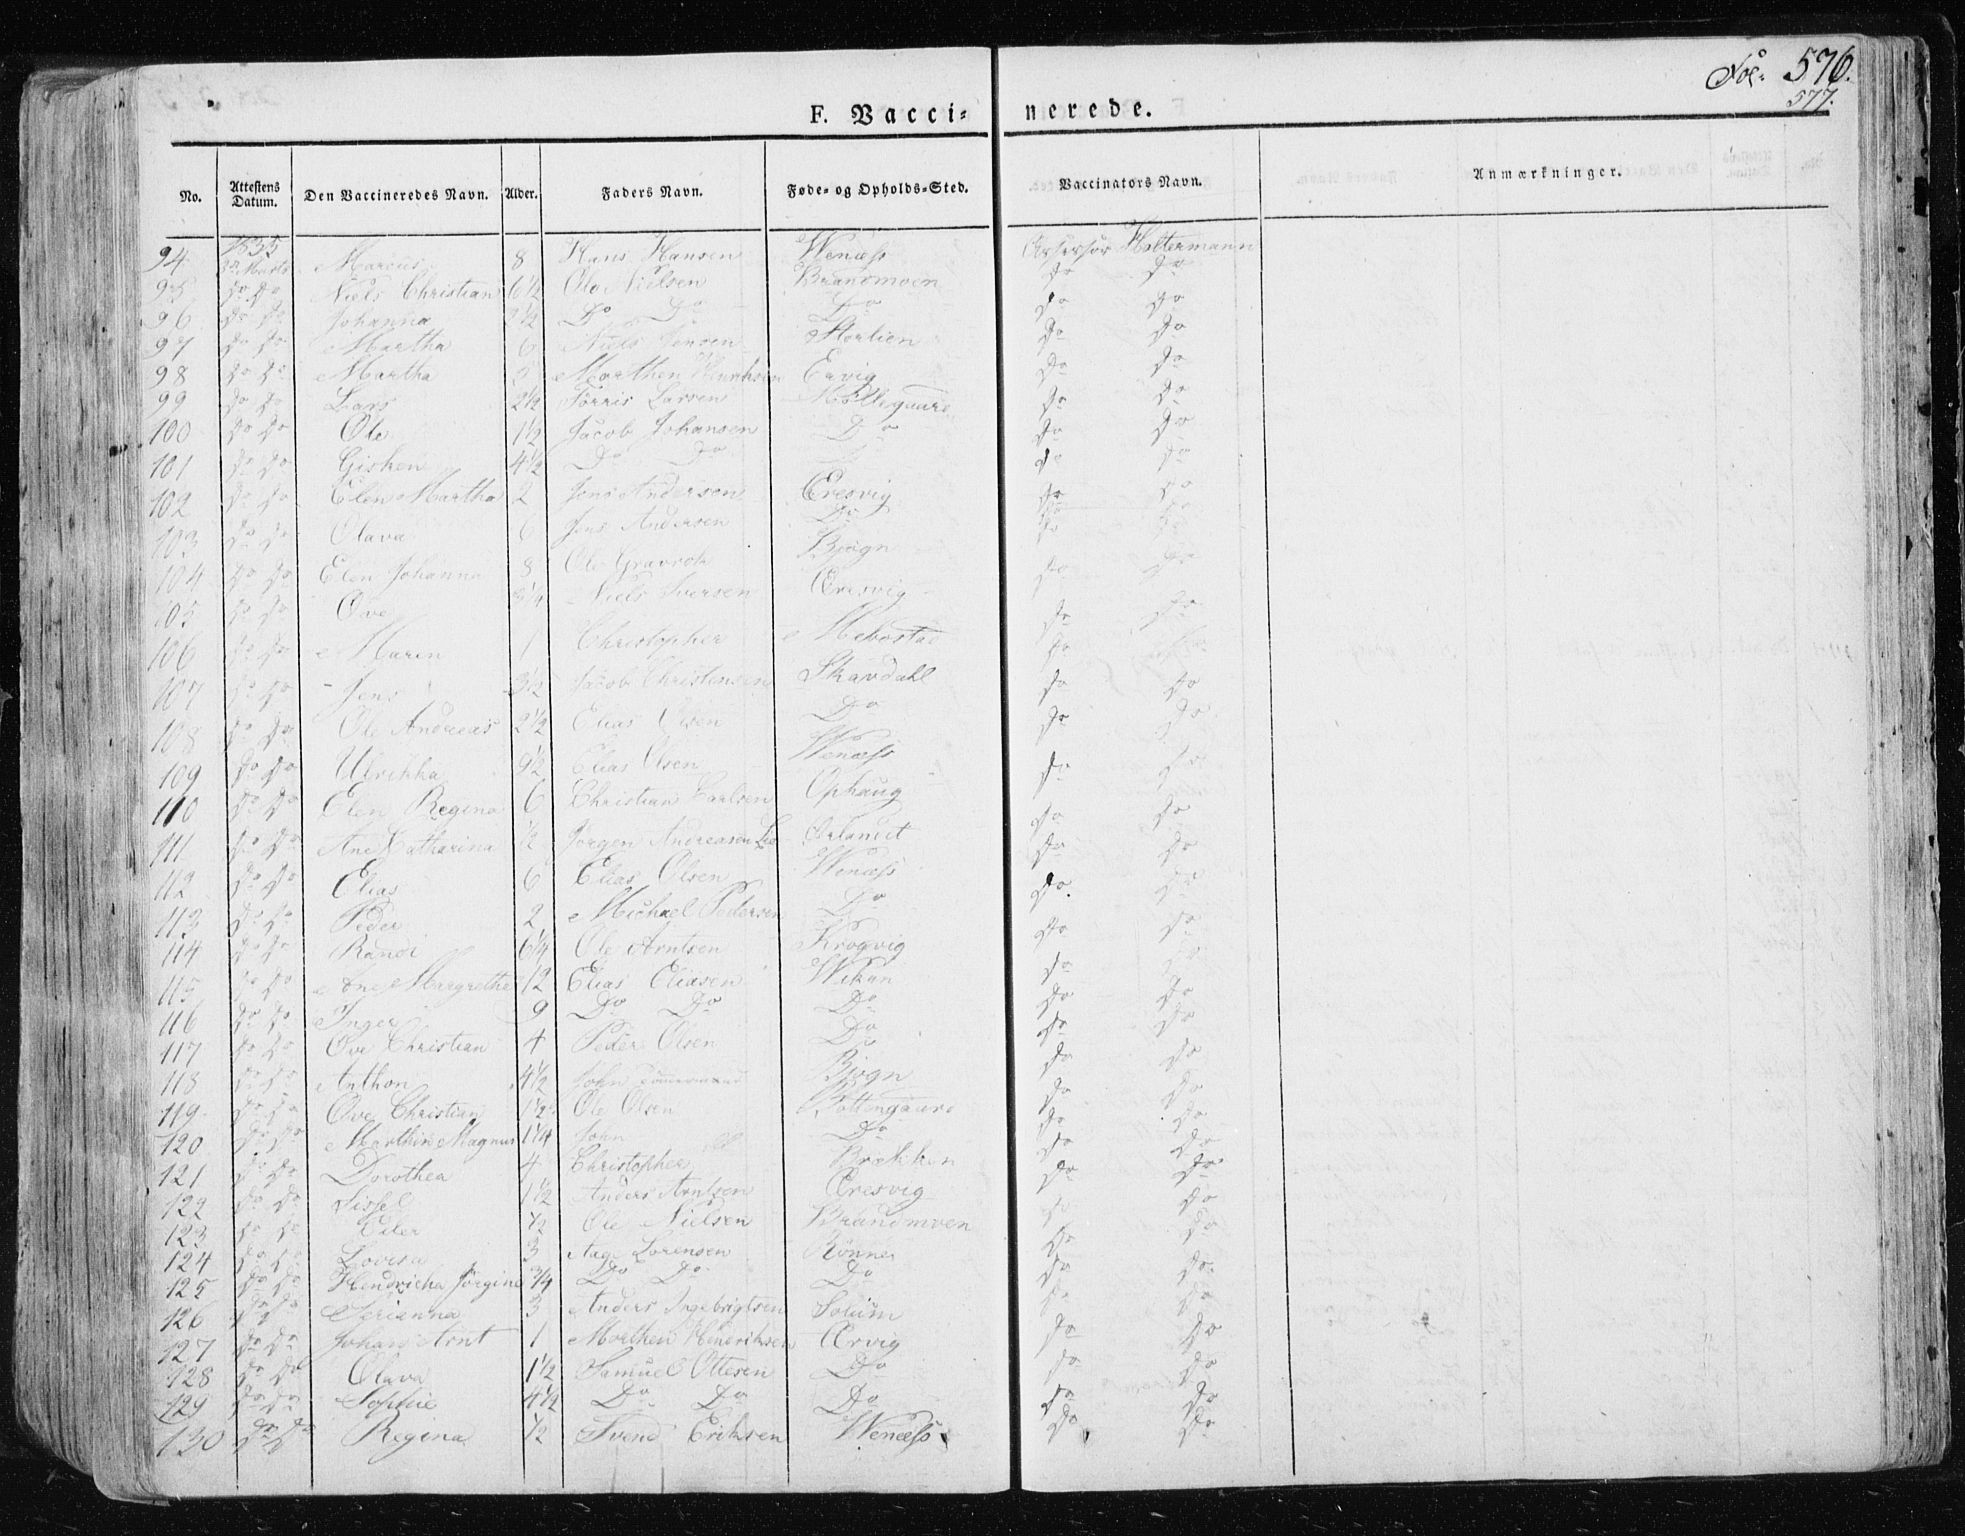 Fol. 576.
577.
F. Vaccinerede.
No. Attestens Datum. Den Vaccineredes Navn. Alder. Faders Navn. Føde- og Opholds-Sted. Vaccinators Navn. Anmærkninger.
1835
94 Marcus 8 Hans Hansen Wenæss Holtermann
95 do do Niels Christian 6½ Ole Nielsen Brandmoen do do
96 do do Johanna 2½ Do Do Do do do
97 do do Martha 6 Niels Jensen Storlien do do
98 do do Martha Morthen Ervig do do
99 do do Lars 2½ Tørris Larsen do do
100 do do Ole 1½ Jacob Johansen Do do do
101 do do Gishen 4½ Do Do do do
102 do do Elen Martha 2 Jens Andersen Eresvig do do
103 do do Olava 6 Jens Andersen Do do do
104 do do Elen Johanna 8 Ole Gravrok Biøgn do do
105 do do Ove 3/4 Niels Iversen Œresvig do do
106 do do Maren 1 Christopher Mebostad do do
107 do do Jens 3½ Jacob Christensen Skavdahl do do
108 do do Ole Andreas 2½ Elias Olsen Do do do
109 do do Ulrikka 9½ Elias Olsen Wenæss do do
110 do do Elen Regina 6 Christian Carlsen Ophaug do do
111 do do Ane Catharina ½ Jørgen Andreasen Lie Ørlandet do do
112 do do Elias 6 Elias Olsen Wenæss do do
113 do do Peder 2 Michael Pedersen Do do do
114 do do Randi 6¼ Ole Arntsen Krogvig do do
115 do do Ane Margrethe 12 Elias Eliasen Wikan do do
116 do do Inger 9 Do Do Do do do
117 do do Ove Christian 4 Peder Olsen Do do do
118 do do Anthon 4½ John Biøgn do do
119 do do Ove Christian 1½ Ole Olsen do do
120 do do Marthin Magnus 1¼ John Do do do
121 do do Dorothea 4 Christopher Brækken do do
122 do do Sissel 1½ Anders Arntsen Œresvig do do
123 do do Eiler ½ Ole Nielsen Brandmoen do do
124 do do Lovisa 3 Aage Lorensen Rønne do do
125 do do Hendricha Jørgine 3/4 Do Do Do do do
126 do do Serianna 3 Anders Ingebrigtsen Solium do do
127 do do Johan Arnt 1 Morthen Hendriksen Œrvig do do
128 do do Olava 1½ Samuel Ottesen Do do do
129 do do Sophie 4½ Do Do Do do do
130 do do Regina ½ Svend Eriksen Wenæss do do